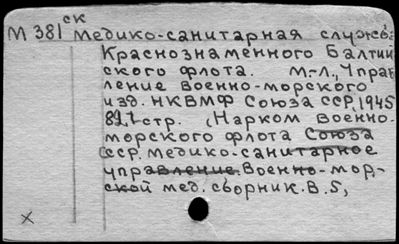 М 381 ск Медико-санитарная служба
Краснознаменного Балтий
ского флота. М.-Л., Управ
ление Военно-морского
изд. НКВМФ Союза ССР, 1945
82 стр. (Нарком Военно-
морского флота Союза
ССР. Медико-санитарное
управление. Военно-мор-
ской мед. сборник. В. 5,
х